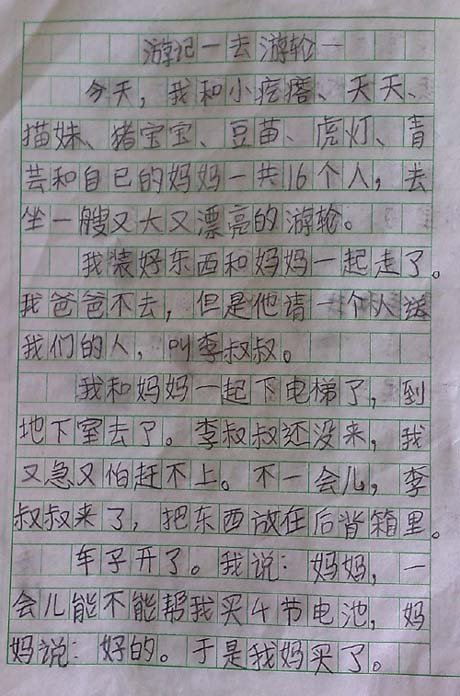 游记一去游轮一
今天，我和小疙瘩、天天、
描妹、猪宝宝、豆苗、虎灯、青
芸和自己的妈妈一共16个人，去
坐一艘又大又漂亮的游轮。
我装好东西和妈妈一起走了。
我爸爸不去，但是他请一个人送
我们的人，叫李叔叔。
我和妈妈一起下电梯了，到
地下室去了。李叔叔还没来，我
又急又怕赶不上。不一会儿，李
叔叔来了，把东西放在后背箱里。
车子开了。我说：妈妈，一
会儿能不能帮我买4节电池，妈
妈说：好的。于是我妈买了。